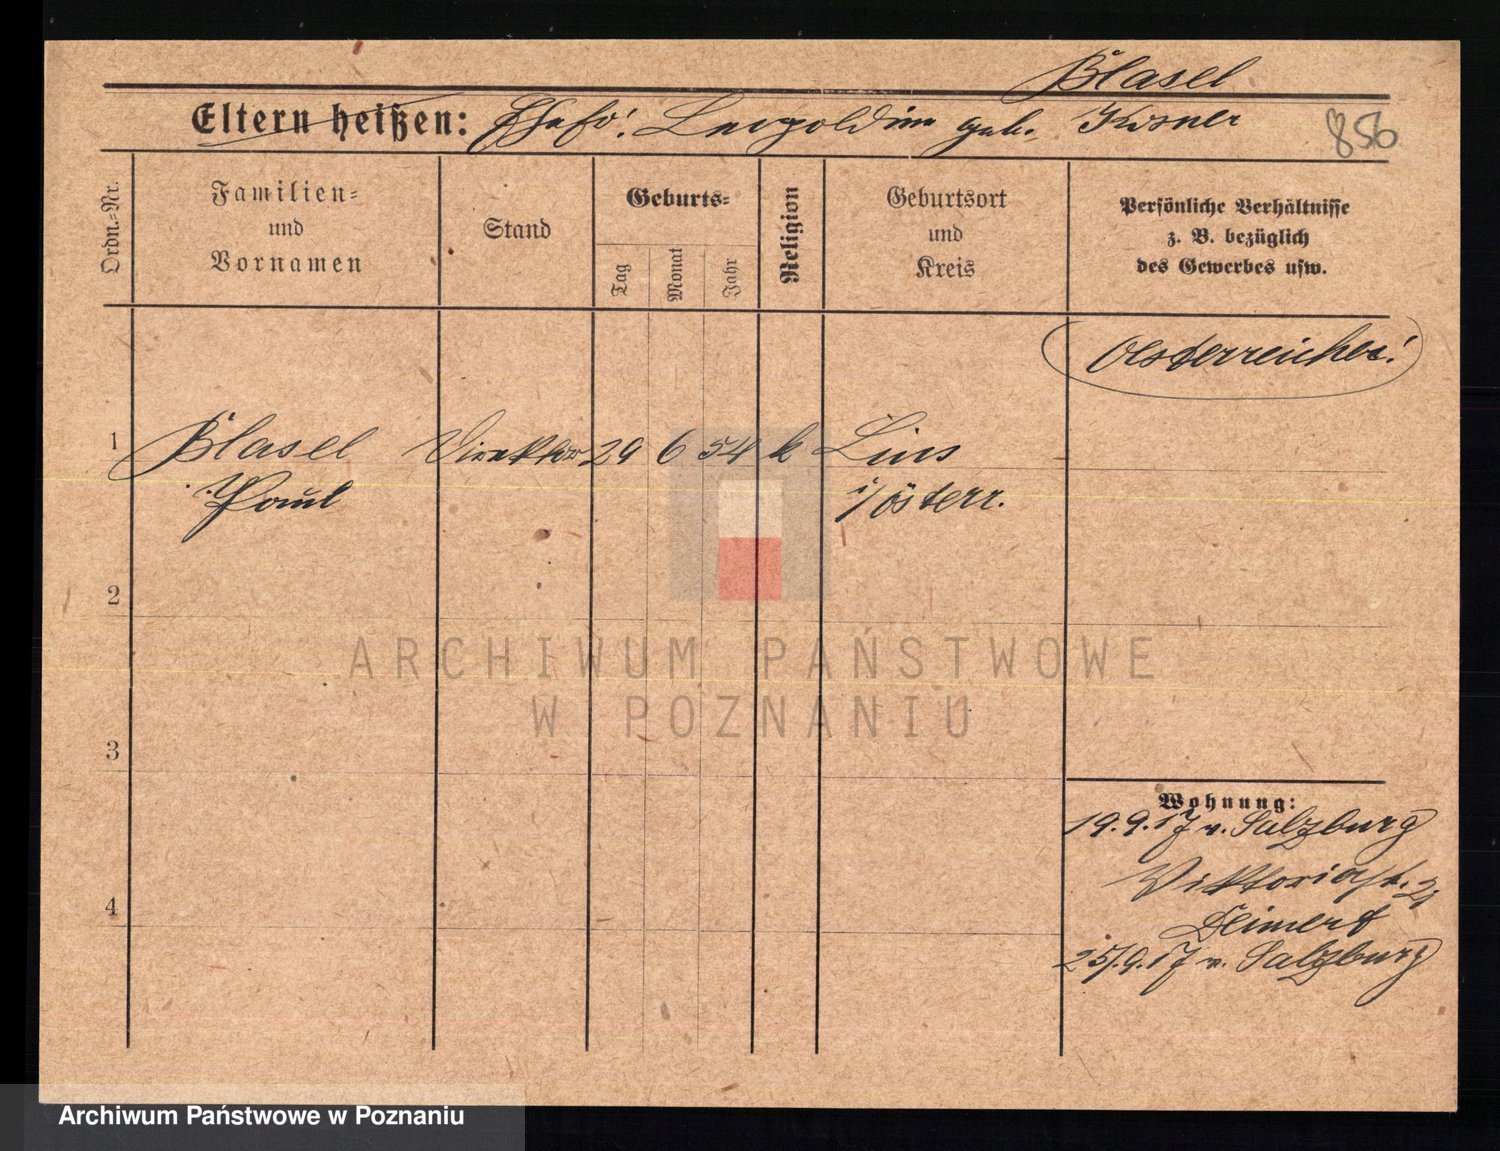 Blasel
Eltern heißen: Ehefr. Leopoldine geb. Kisner
856
Ordn.=Nr.
Familien=
und
Vornamen
Stand
Geburts=
Tag
Monat
Jahr
Religion
Geburtsort
und
Kreis
Persönliche Verhältnisse
z. B. bezüglich
des Gewerbes usw.
Oesterreicher!
1 Blasel Direktor 29 6 54 k Lins
Paul i/österr.
2
3
4
Wohnung:
19.9.17 v. Salzburg
Viktoriastr. 21
25/9.17 n. Salzburg
ARCHIWUM PAŃSTWOWE
W POZNANIU
Archiwum Państwowe w Poznaniu